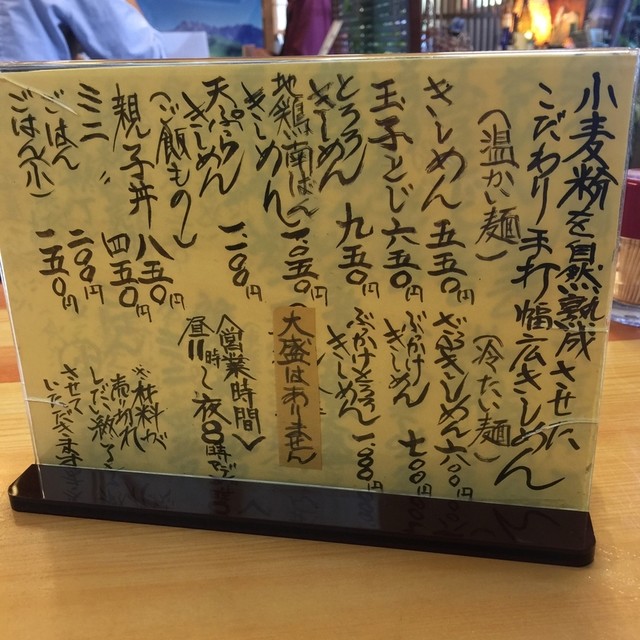 小麦粉を自然熟成させた
こだわり手打幅広きしめん
(温かい麺)
きしめん 五五〇円
玉子とじ 六五〇円
とろろきしめん 九五〇円
地鶏南ばんきしめん 一、〇五〇円
天ぷらきしめん 一、二〇〇円
(ご飯もの)
親子丼 八五〇円
ミニ 〃 四五〇円
ごはん 二〇〇円
ごはん(小) 一五〇円
(冷たい麺)
ざるきしめん 六〇〇円
ぶかけきしめん 七〇〇円
ぶかけとろろきしめん 一、一〇〇円
大盛はありません
〈営業時間〉
昼11時〜夜8時まで
※材料が
売切れ
しだい終了
させて
いただきます